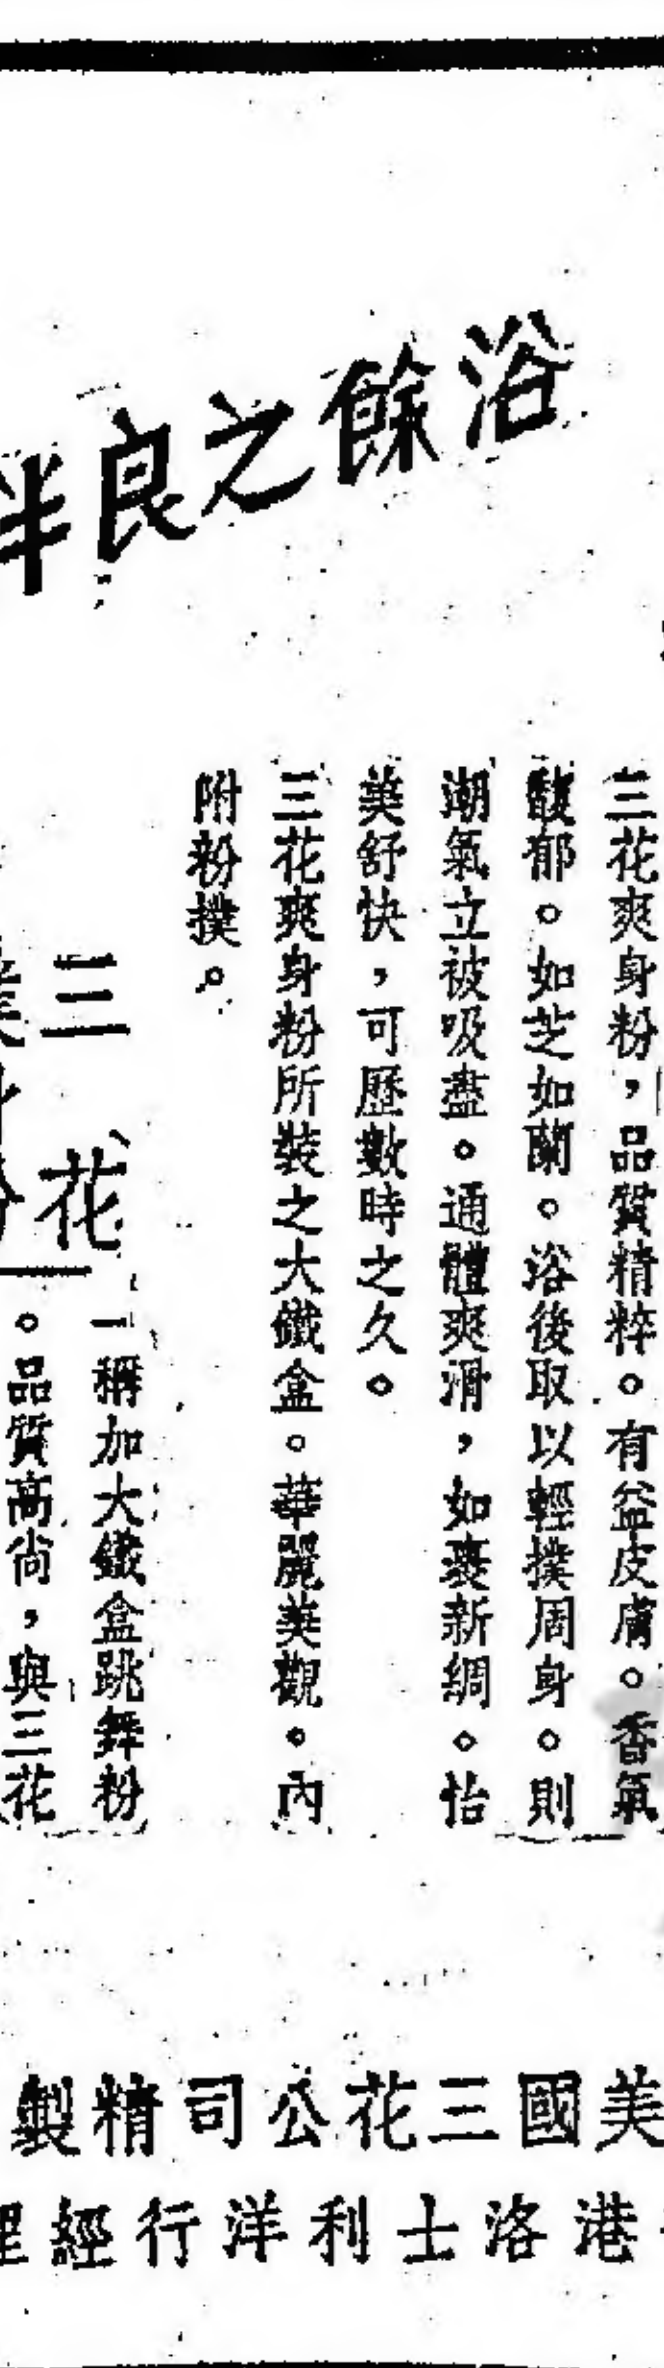 浴餘之良伴
三花爽身粉，品質精粹。有益皮膚。香氣
馥郁。如芝如蘭。浴後取以輕撲周身。則
潮氣立被吸盡。通體爽滑，如裹新綢。怡
美舒快，可歷數時之久。
三花爽身粉所裝之大鐵盒。華麗美觀。內
附粉撲。
三花
一稱加大鐵盒跳舞粉
。品質高尙，與三花
美國三花公司精製
港洛士利洋行經理